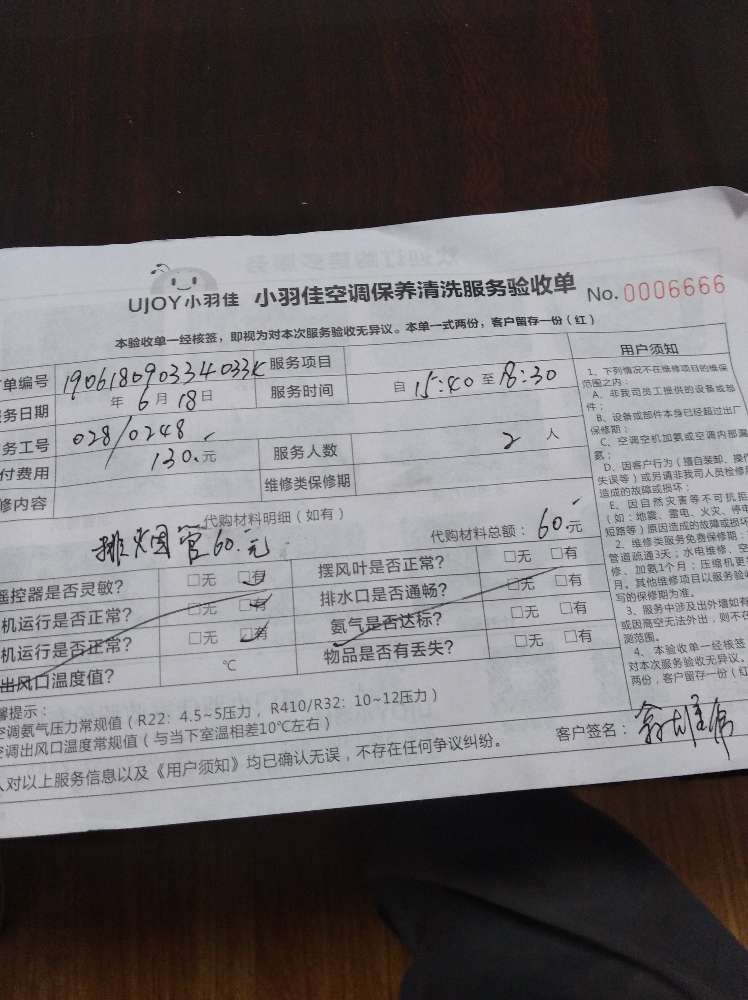 UJOY小羽佳 小羽佳空调保养清洗服务验收单 No.0006666
本验收单一经核签，即视为对本次服务验收无异议。本单一式两份，客户留存一份（红）
单编号 190618090334033K 服务项目
务日期 年 6月 18日 服务时间 自 15:40 至 18:30
务工号 028/0248
付费用 130.元 服务人数 2 人
修内容 维修类保修期
代购材料明细（如有）
排烟管60.元 代购材料总额：60.元
遥控器是否灵敏？ □无 □有 摆风叶是否正常？ □无 □有
机运行是否正常？ □无 □有 排水口是否通畅？ □无 □有
机运行是否正常？ □无 □有 氨气是否达标？ □无 □有
出风口温度值？ ℃ 物品是否有丢失？ □无 □有
馨提示：
空调氨气压力常规值（R22：4.5~5压力，R410/R32：10~12压力）
空调出风口温度常规值（与当下室温相差10℃左右）
人对以上服务信息以及《用户须知》均已确认无误，不存在任何争议纠纷。
客户签名：
用户须知
1、下列情况不在维修项目的维保
范围之内：
A、非我司员工提供的设备或部
件；
B、设备或部件本身已经超过出厂
保修期；
C、空调空机加氨或空调内部漏
氨；
D、因客户行为（擅自装卸、操作
失误等）或另请非我司人员检修
造成的故障或损坏；
E、因自然灾害等不可机拒
（如：地震、雷电、火灾、停电
短路等）原因造成的故障或损坏
2、维修类服务免费保修期：
管道疏通3天；水电维修、空
修、加氨1个月；压缩机更
月。其他维修项目以服务验
写的保修期为准。
3、服务中涉及出外墙如有
或因高空无法外出，则不在
测范围。
4、本验收单一经核签
对本次服务验收无异议。
两份，客户留存一份（红